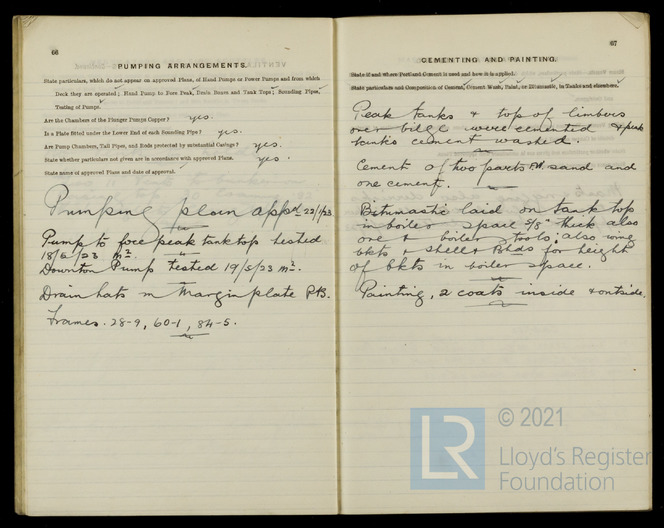 66
PUMPING ARRANGEMENTS.
State particulars, which do not appear on approved Plans, of Hand Pumps or Power Pumps and from which
Deck they are operated; Hand Pump to Fore Peak, Drain Boxes and Tank Tops; Sounding Pipes,
Testing of Pumps.
Are the Chambers of the Plunger Pumps Copper? yes.
Is a Plate fitted under the Lower End of each Sounding Pipe? yes.
Are Pump Chambers, Tail Pipes, and Rods protected by substantial Casings? yes.
State whether particulars not given are in accordance with approved Plans. yes.
State name of approved Plans and date of approval.
Pumping plan appd 22/1/23
Pump to fore peak tank top tested
18/5/23
Downton Pump tested 19/5/23
Drain hats in Margin plate P&S.
Frames. 28-9, 60-1, 84-5.
67
CEMENTING AND PAINTING.
State if and where Portland Cement is used and how it is applied.
State particulars and Composition of Cement, Cement Wash, Paint, or Bitumastic, in Tanks and elsewhere.
Peak tanks & top of limbers
over bilge were cemented & peak
tanks cement washed.
Cement of two parts sand and
one cement.
Bitumastic laid on tank top
in boiler space 5/8" thick also
one & boiler stools; also wing
bkts & shell & Blds for height
of bkts in boiler space.
Painting, 2 coats inside & outside.
LR
© 2021
Lloyd's Register
Foundation